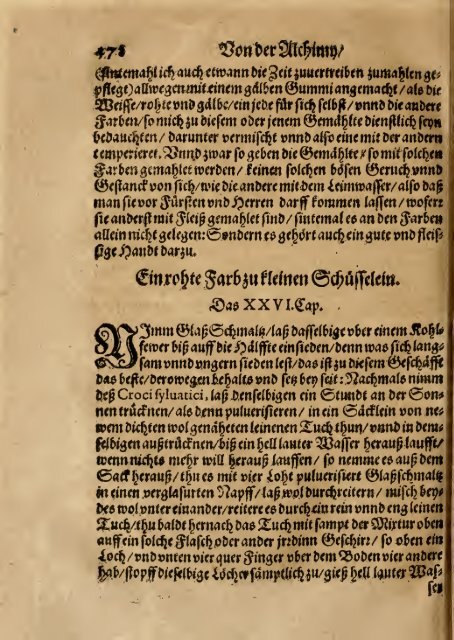 478 Von der Alchimy/
(sintemahl ich auch etwann die Zeit zuuertreiben zumahlen ge-
pflegt) allwegen mit einem gälben Gummi angemacht/ als die
Weisse/ rohte vnd gälbe/ ein jede für sich selbst/ vnnd die andere
Farben/ so mich zu diesem oder jenem Gemählte dienstlich seyn
bedauchten/ darunter vermischt vnnd also eine mit der andern
temperieret. Vnnd zwar so geben die Gemählte/ so mit solchen
Farben gemahlet werden/ keinen solchen bösen Geruch vnnd
Gestanck von sich/ wie die andere mit dem Leimwasser/ also daß
man sie vor Fürsten vnd Herren darff kommen lassen/ wofern
sie anderst mit Fleiß gemahlet sind/ sintemal es an den Farben
allein nicht gelegen: Sondern es gehört auch ein gute vnd fleis-
sige Handt darzu.
Ein rohte Farb zu kleinen Schüsselein.
Das XXVI. Cap.
NImm Glaß Schmaltz/ laß dasselbige vber einem Kohl-
fewer biß auff die Hälffte einsieden/ denn was sich lang-
sam vnnd vngern sieden lest/ das ist zu diesem Geschäfft
das beste/ derowegen behalts vnd sey bey seit: Nachmals nimm
deß Croci syluatici, laß denselbigen ein Stundt an der Son-
nen trücknen/ als denn puluerisieren/ in ein Säcklein von ne-
wem dichten wol genäheten leinenen Tuch thun/ vnnd in dem-
selbigen außtrücknen/ biß ein hell lauter Wasser herauß laufft/
wenn nichts mehr will herauß lauffen/ so nemme es auß dem
Sack herauß/ thu es mit vier Loht puluerisiert Glaßschmaltz
in einen verglasurten Napff/ laß wol durcheitern/ misch bey-
des wol vnter einander/ reitere es durch ein rein vnnd eng leinen
Tuch/ thu baldt hernach das Tuch mit sampt der Mixtur oben
auff ein solche Flasch oder ander jrrdinn Geschirr/ so oben ein
Loch/ vnd vnten vier quer Finger vber dem Boden vier andere
hab/ stopff dieselbige Löcher sämptlich zu/ gieß hell lauter Was-
ser